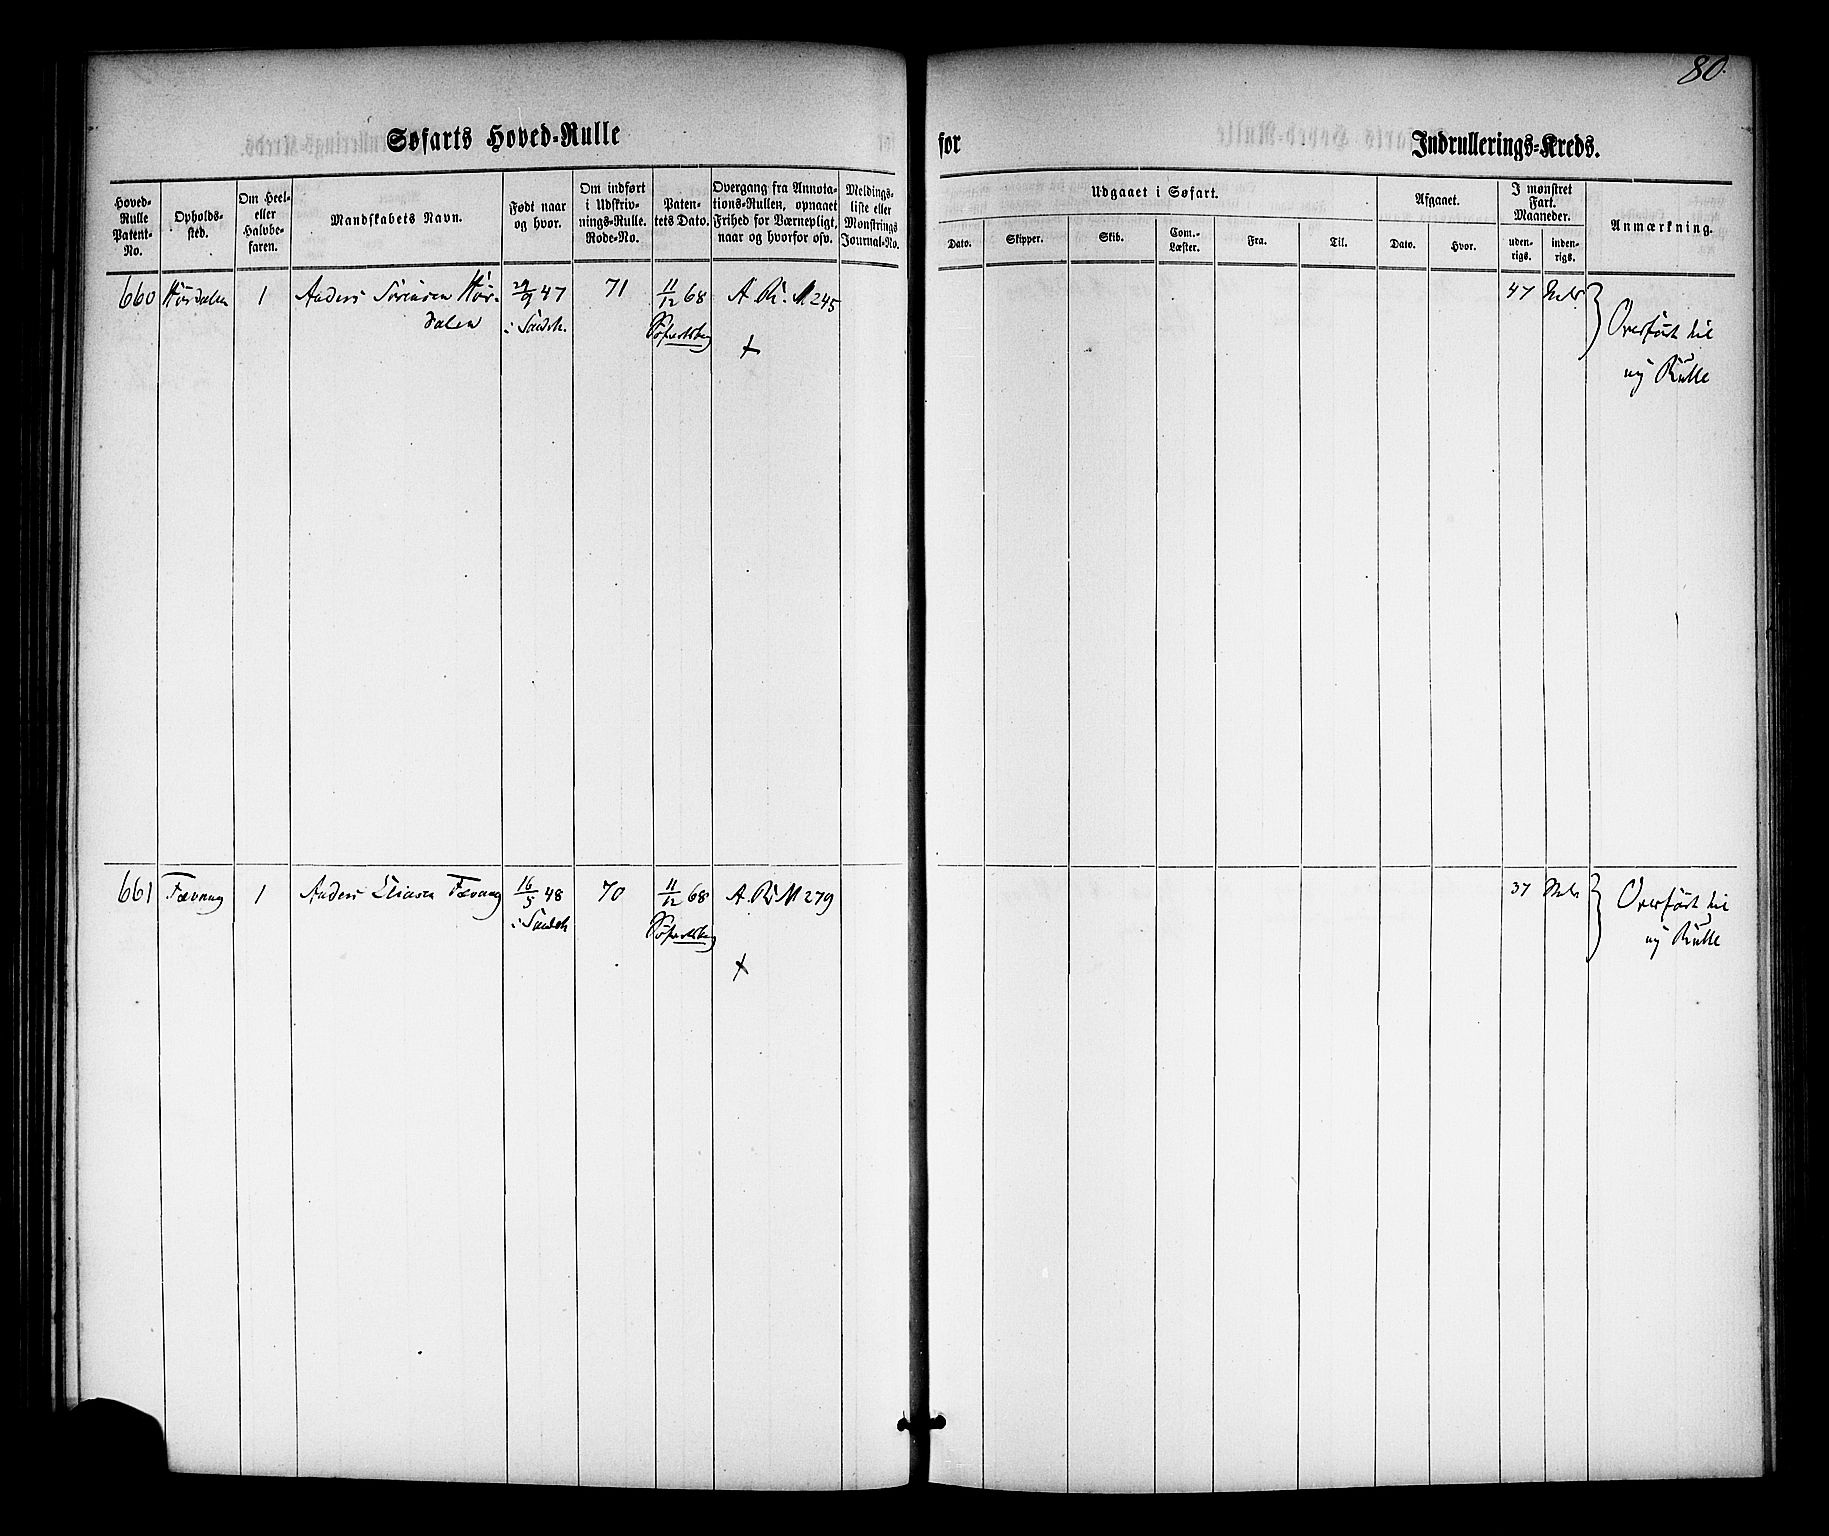 80.
Søfarts Hoved-Rulle
for
Indrullerings-Kreds.
Hoved-
Rulle
Patent-
No.
Opholds-
sted.
Om Heel-
eller
Halvbe-
faren.
Mandskabets Navn.
Født naar
og hvor.
Om indført
i Udskriv-
nings-Rulle.
Rode-No.
Paten-
tets Dato.
Overgang fra Annota-
tions-Rullen, opnaaet
Frihed for Værnepligt,
naar og hvorfor osv.
Meldings-
liste eller
Mønstrings
Journal-No.
Udgaaet i Søfart.
Dato.
Skipper.
Skib.
Com.-
Læster.
Fra.
Til.
Afgaaet.
Dato.
Hvor.
I mønstret
Fart.
Maaneder.
uden-
rigs.
inden-
rigs.
Anmærkning.
660 Hørdalen 1 Anders Sørensen Hør- 29/9 47 71 11/12 68 A. R. № 245 47
dalen i Sandeh. Søfartsbog
+
Overført til
ny Rulle
661 Fævang 1 Anders Eliasen Fævang 16/5 48 70 11/12 68 A. R. № 279 37
i Sandeh Søfartsbog
+
Overført til
ny Rulle